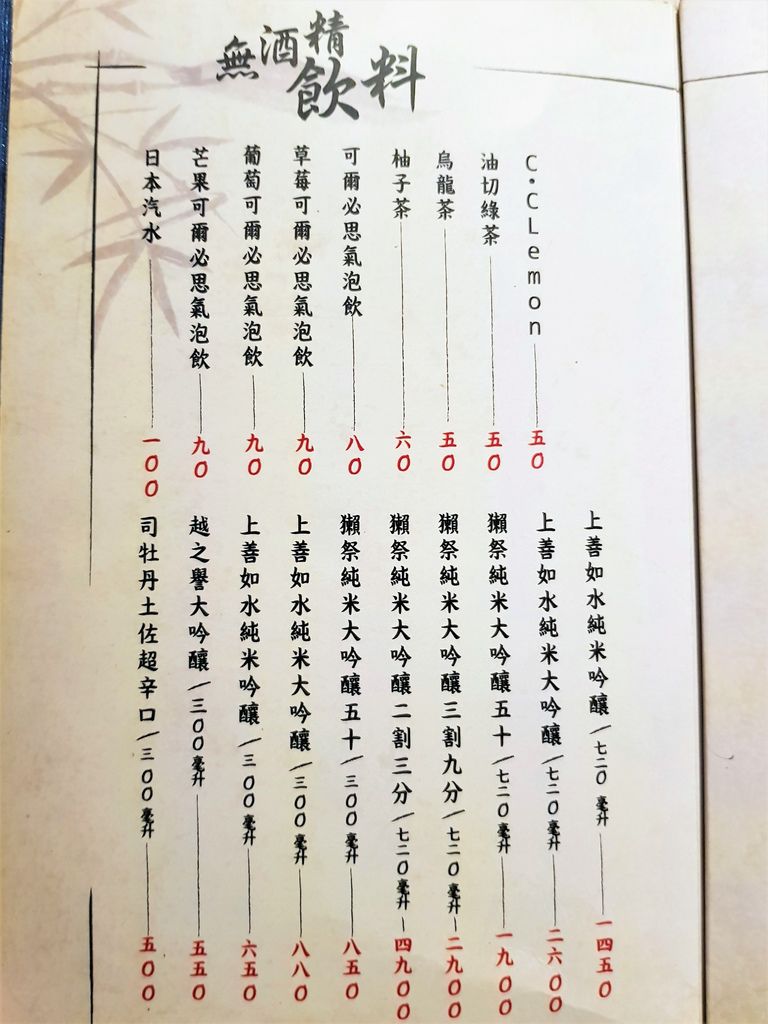 無酒精飲料
C.CLemon 五0
油切綠茶 五0
烏龍茶 五0
柚子茶 六0
可爾必思氣泡飲 八0
草莓可爾必思氣泡飲 九0
葡萄可爾必思氣泡飲 九0
芒果可爾必思氣泡飲 九0
日本汽水 一00
上善如水純米吟釀/七二0毫升 一四五0
上善如水純米大吟釀/七二0毫升 二六00
獺祭純米大吟釀五十/七二0毫升 一九00
獺祭純米大吟釀三割九分/七二0毫升 二九00
獺祭純米大吟釀二割三分/七二0毫升 四九00
獺祭純米大吟釀五十/三00毫升 八五0
上善如水純米大吟釀/三00毫升 八八0
上善如水純米吟釀/三00毫升 六五0
越之譽大吟釀/三00毫升 五五0
司牡丹土佐超辛口/三00毫升 五00